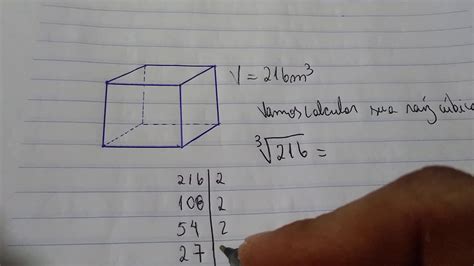 V = 216m³
Vamos calcular sua raiz cúbica
³√216 =
216 | 2
108 | 2
54 | 2
27 |